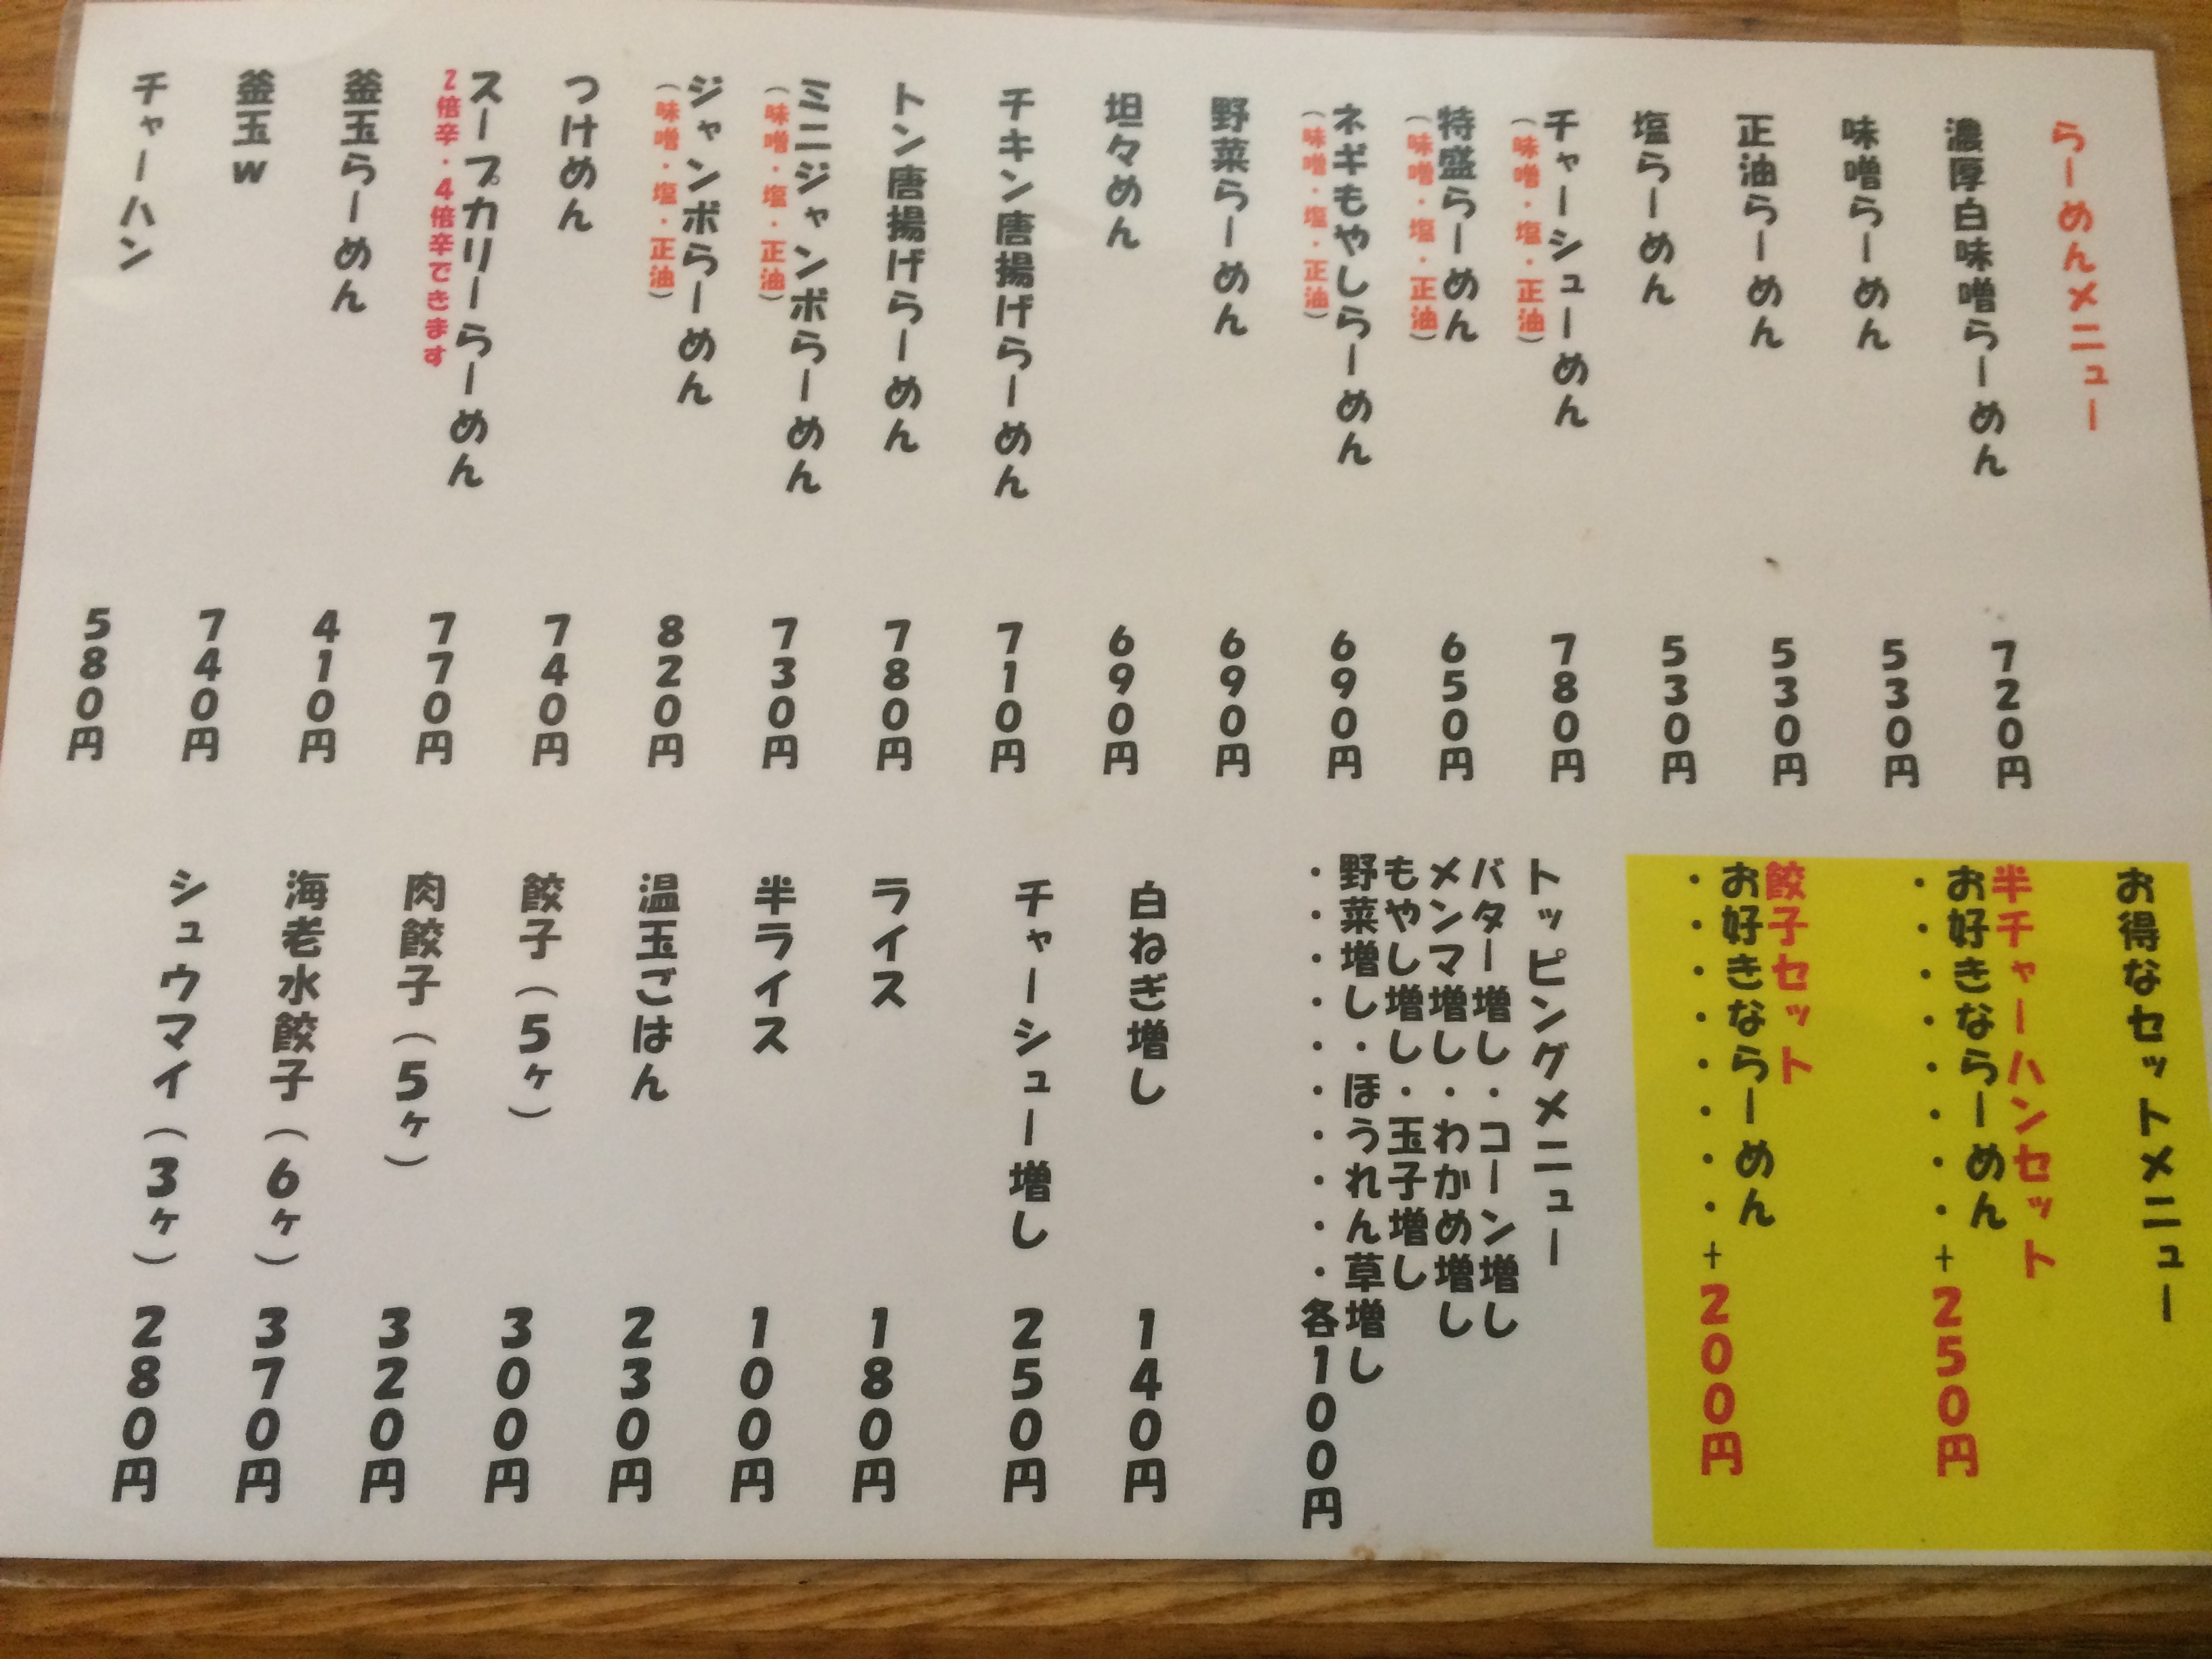 らーめんメニュー
濃厚白味噌らーめん 720円
味噌らーめん 530円
正油らーめん 530円
塩らーめん 530円
チャーシューめん 780円
(味噌・塩・正油)
特盛らーめん 650円
(味噌・塩・正油)
ネギもやしらーめん 690円
(味噌・塩・正油)
野菜らーめん 690円
坦々めん 690円
チキン唐揚げらーめん 710円
トン唐揚げらーめん 780円
ミニジャンボらーめん 730円
(味噌・塩・正油)
ジャンボらーめん 820円
(味噌・塩・正油)
つけめん 740円
スープカリーらーめん 770円
2倍辛・4倍辛できます
釜玉らーめん 410円
釜玉w 740円
チャーハン 580円
お得なセットメニュー
半チャーハンセット
お好きならーめん
・・・・・・・・+250円
餃子セット
お好きならーめん
・・・・・・・・+200円
トッピングメニュー
バター増し・コーン増し
メンマ増し・わかめ増し
もやし増し・玉子増し
野菜増し・ほうれん草増し
・・・・・・・・・・各100円
白ねぎ増し 140円
チャーシュー増し 250円
ライス 180円
半ライス 100円
温玉ごはん 230円
餃子(5ヶ) 300円
肉餃子(5ヶ) 320円
海老水餃子(6ヶ) 370円
シュウマイ(3ヶ) 280円